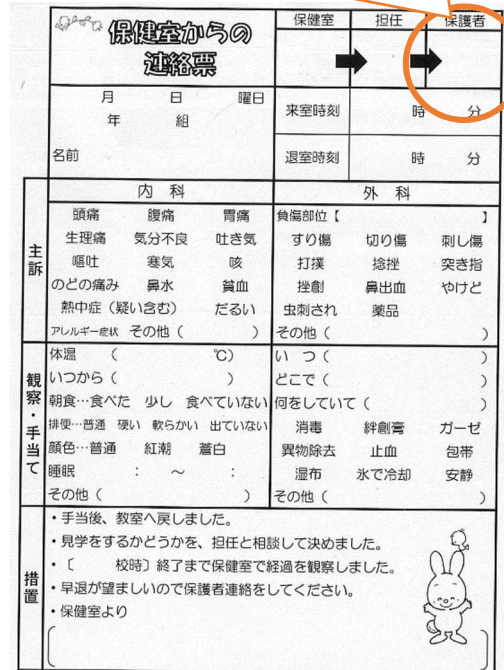 保健室からの
連絡票
保健室 担任 保護者
月 日 曜日
年 組
名前
来室時刻 時 分
退室時刻 時 分
主訴
内科
頭痛 腹痛 胃痛
生理痛 気分不良 吐き気
嘔吐 寒気 咳
のどの痛み 鼻水 貧血
熱中症（疑い含む） だるい
アレルギー症状 その他（ ）
外科
負傷部位【 】
すり傷 切り傷 刺し傷
打撲 捻挫 突き指
挫創 鼻出血 やけど
虫刺され 薬品
その他（ ）
観察・手当て
体温 （ ℃）
いつから（ ）
朝食…食べた 少し 食べていない
排便…普通 硬い 軟らかい 出ていない
顔色…普通 紅潮 蒼白
睡眠 ： ～ ：
その他（ ）
いつ（ ）
どこで（ ）
何をしていて（ ）
消毒 絆創膏 ガーゼ
異物除去 止血 包帯
湿布 氷で冷却 安静
その他（ ）
措置
・手当後、教室へ戻しました。
・見学をするかどうかを、担任と相談して決めました。
・〔 校時〕終了まで保健室で経過を観察しました。
・早退が望ましいので保護者連絡をしてください。
・保健室より